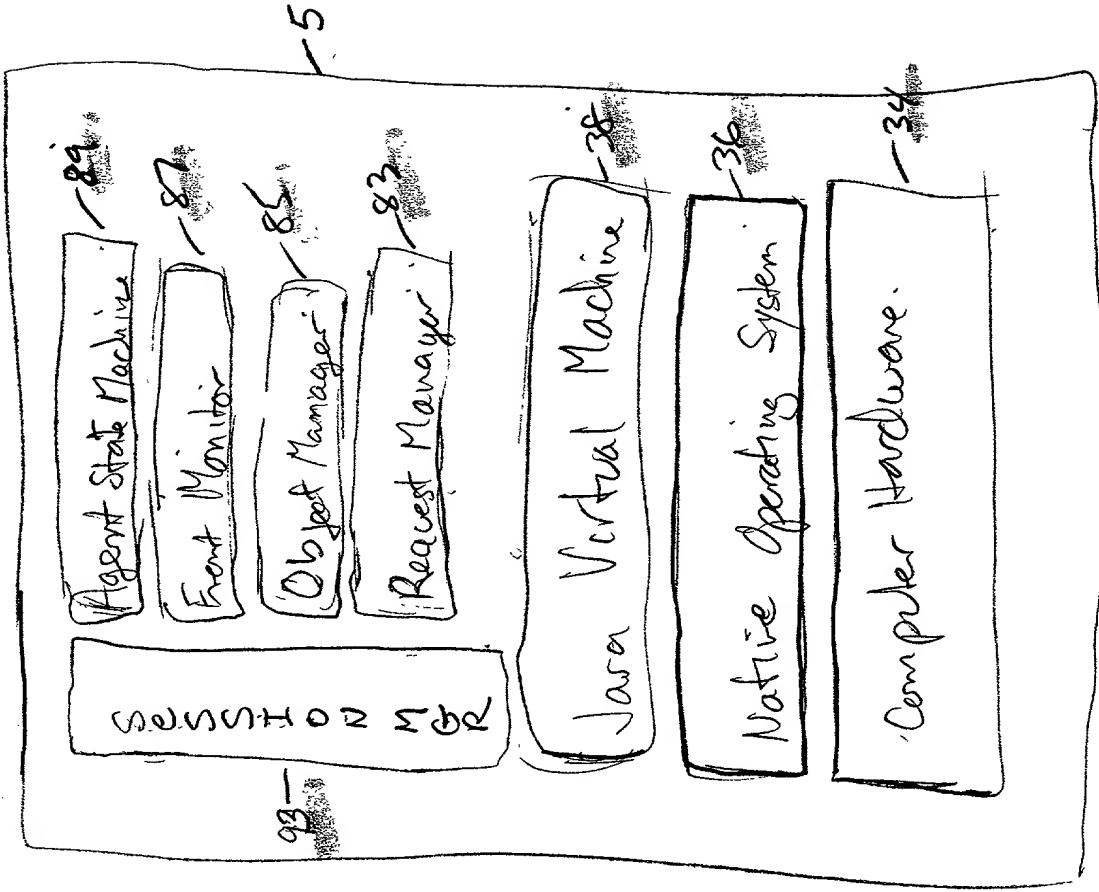 5
Agent State Machine
89
Event Monitor
87
Object Manager
85
Request Manager
83
SESSION MGR
93
Java Virtual Machine
38
Native Operating System
36
Computer Hardware.
34